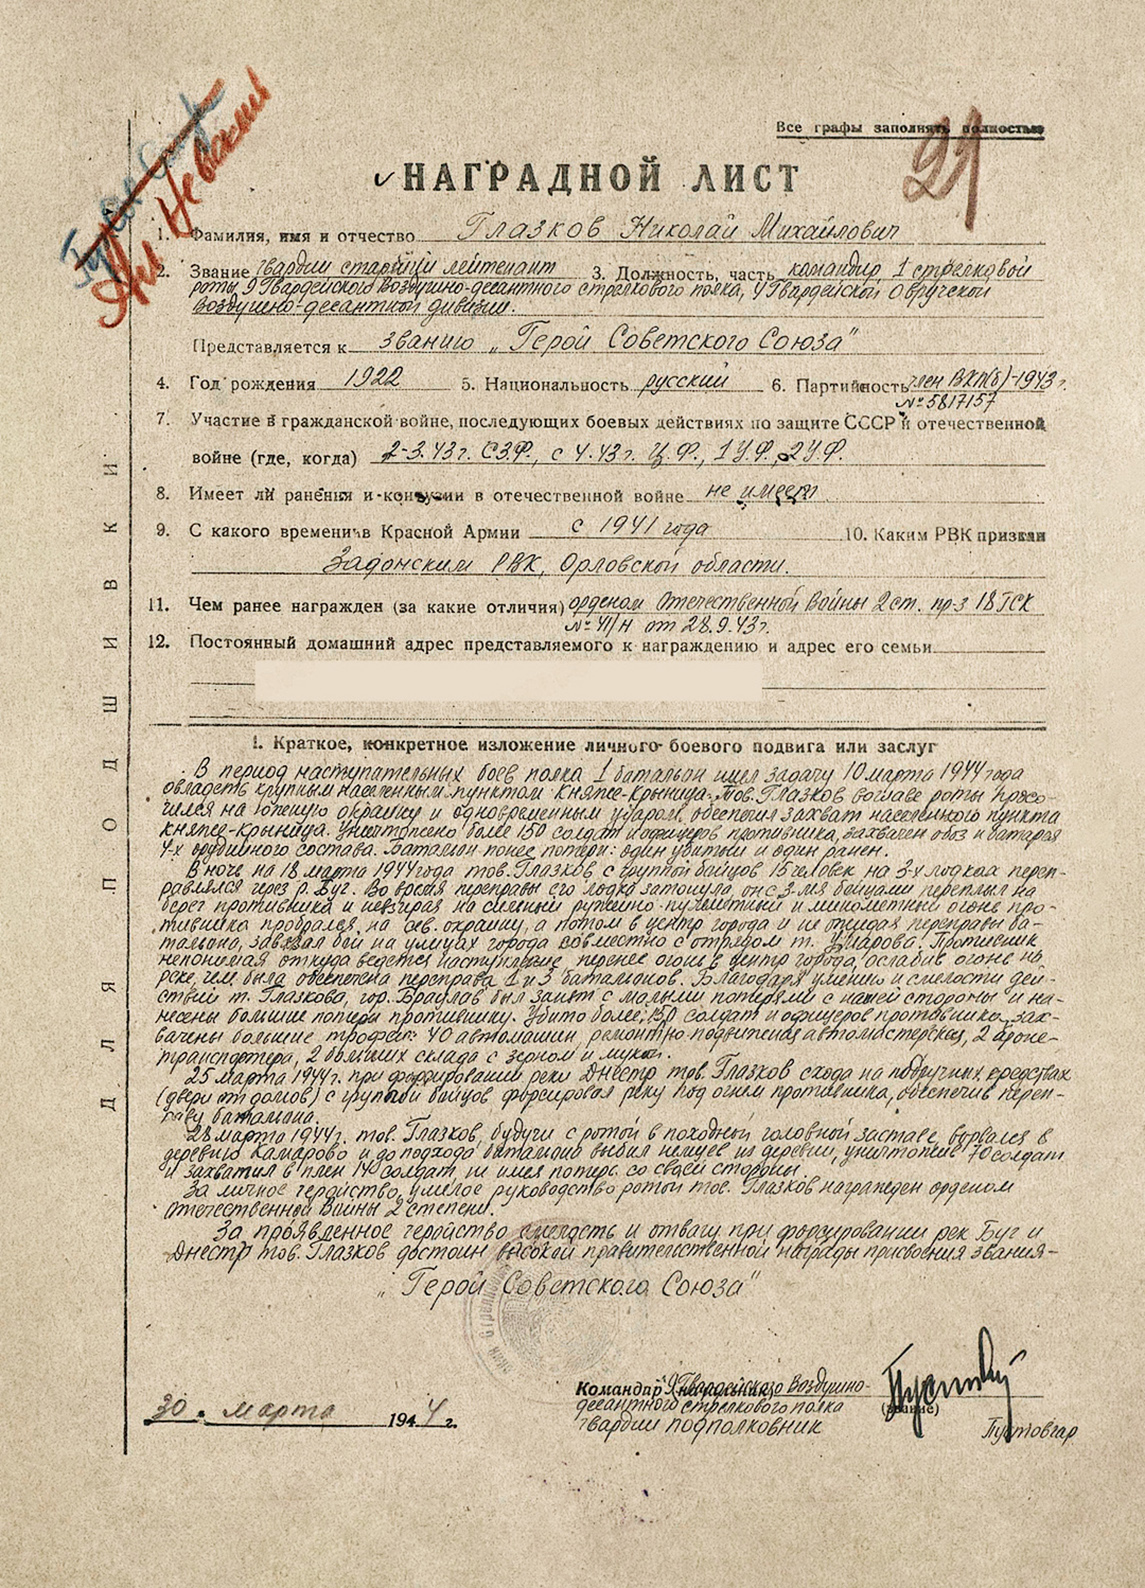 Все графы заполнять полностью
21
НАГРАДНОЙ ЛИСТ
Ал. Невский
1. Фамилия, имя и отчество Глазков Николай Михайлович
2. Звание гвардии старший лейтенант 3. Должность, часть командир 1 стрелковой
роты, 9 Гвардейского Воздушно-десантного стрелкового полка, 4 Гвардейской Овручской
воздушно-десантной дивизии.
Представляется к званию „Герой Советского Союза"
4. Год рождения 1922 5. Национальность русский 6. Партийность член ВКП(б)-1943г.
№ 5817157
7. Участие в гражданской войне, последующих боевых действиях по защите СССР и отечественной
войне (где, когда) 2-3.43г. СЗФ, с 4.43г. Ц.Ф., 1 У.Ф., 2 У.Ф.
8. Имеет ли ранения и контузии в отечественной войне не имеет
9. С какого времени в Красной Армии с 1941 года 10. Каким РВК призван
Задонским РВК, Орловской области.
11. Чем ранее награжден (за какие отличия) орденом Отечественной Войны 2 ст. пр-з 18 ГСК
№ 41/н от 28.9.43г.
12. Постоянный домашний адрес представляемого к награждению и адрес его семьи
ДЛЯ ПОДШИВКИ
1. Краткое, конкретное изложение личного боевого подвига или заслуг
В период наступательных боев полка 1 батальон имел задачу 10 марта 1944 года
овладеть крупным населенным пунктом Княже-Крыница. Тов. Глазков во главе роты просо-
чился на южную окраину и одновременным ударом, обеспечил захват населенного пункта
Княже-Крыница. Уничтожено более 150 солдат и офицеров противника, захвачен обоз и батарея
4-х орудийного состава. Батальон понес потери: один убитый и один ранен.
В ночь на 18 марта 1944 года тов. Глазков с группой бойцов 15 человек на 3-х лодках переп-
равлялся через р. Буг. Во время переправы его лодка затонула, он с 3-мя бойцами переплыл на
берег противника и невзирая на сильный ружейно-пулеметный и минометный огонь про-
тивника пробрался на сев. окраину, а потом в центр города и не ожидая переправы ба-
тальона, завязал бой на улицах города совместно с отрядом т. Умарова. Противник
непонимая откуда ведется наступление перенес огонь в центр города, ослабив огонь на
реке, чем была обеспечена переправа 1 и 3 батальонов. Благодаря умению и смелости дей-
ствий т. Глазкова, гор. Брацлав был занят с малыми потерями с нашей стороны и на-
несены большие потери противнику. Убито более 150 солдат и офицеров противника, зах-
вачены большие трофеи: 40 автомашин, ремонтно-подвижная автомастерская, 2 броне-
транспортера, 2 больших склада с зерном и мукой.
25 марта 1944г. при форсировании реки Днестр тов. Глазков сходу на подручных средствах
(двери от домов) с группой бойцов форсировал реку под огнем противника, обеспечив переп-
раву батальона.
28 марта 1944г. тов. Глазков, будучи с ротой в походной головной заставе, ворвался в
деревню Камарово и до подхода батальона выбил немцев из деревни, уничтожив 70 солдат
и захватил в плен 140 солдат, не имея потерь со своей стороны.
За личное геройство, умелое руководство ротой тов. Глазков награжден орденом
Отечественной Войны 2 степени.
За проявленное геройство смелость и отвагу при форсировании рек Буг и
Днестр тов. Глазков достоин высокой правительственной награды присвоения звания-
„Герой Советского Союза"
30. марта 1944 г.
Командир (начальник) 9 Гвардейского Воздушно-
десантного стрелкового полка
(звание)
гвардии подполковник